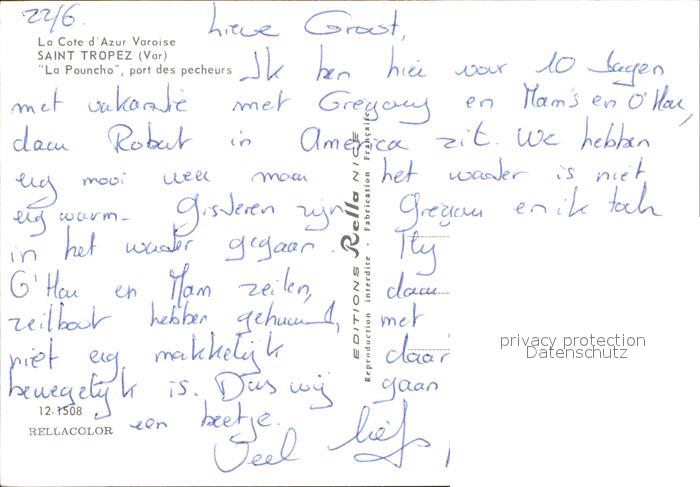 22/6.
Lieve Groot,
La Cote d'Azur Varoise
SAINT TROPEZ (Var)
"La Pouncho", port des pecheurs
Ik ben hier voor 10 dagen
met vakantie met Gregory en Mam's en O'Hau,
daar Robert in America zit. We hebben
erg mooi weer maar het water is niet
erg warm. Gisteren zijn Gregory en ik toch
in het water gegaan. My
O'Hau en Mam zeilen, daar
zeilboot hebben gehuurd, met
niet erg makkelijk daar
bewegelijk is. Dus wij gaan
een beetje.
Veel liefs
12-1508
RELLACOLOR
EDITIONS Rella NICE
Reproduction interdite - Fabrication Française
privacy protection
Datenschutz